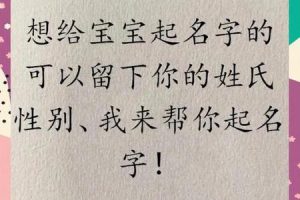 想给宝宝起名字的
可以留下你的姓氏
性别、我来帮你起名
字!